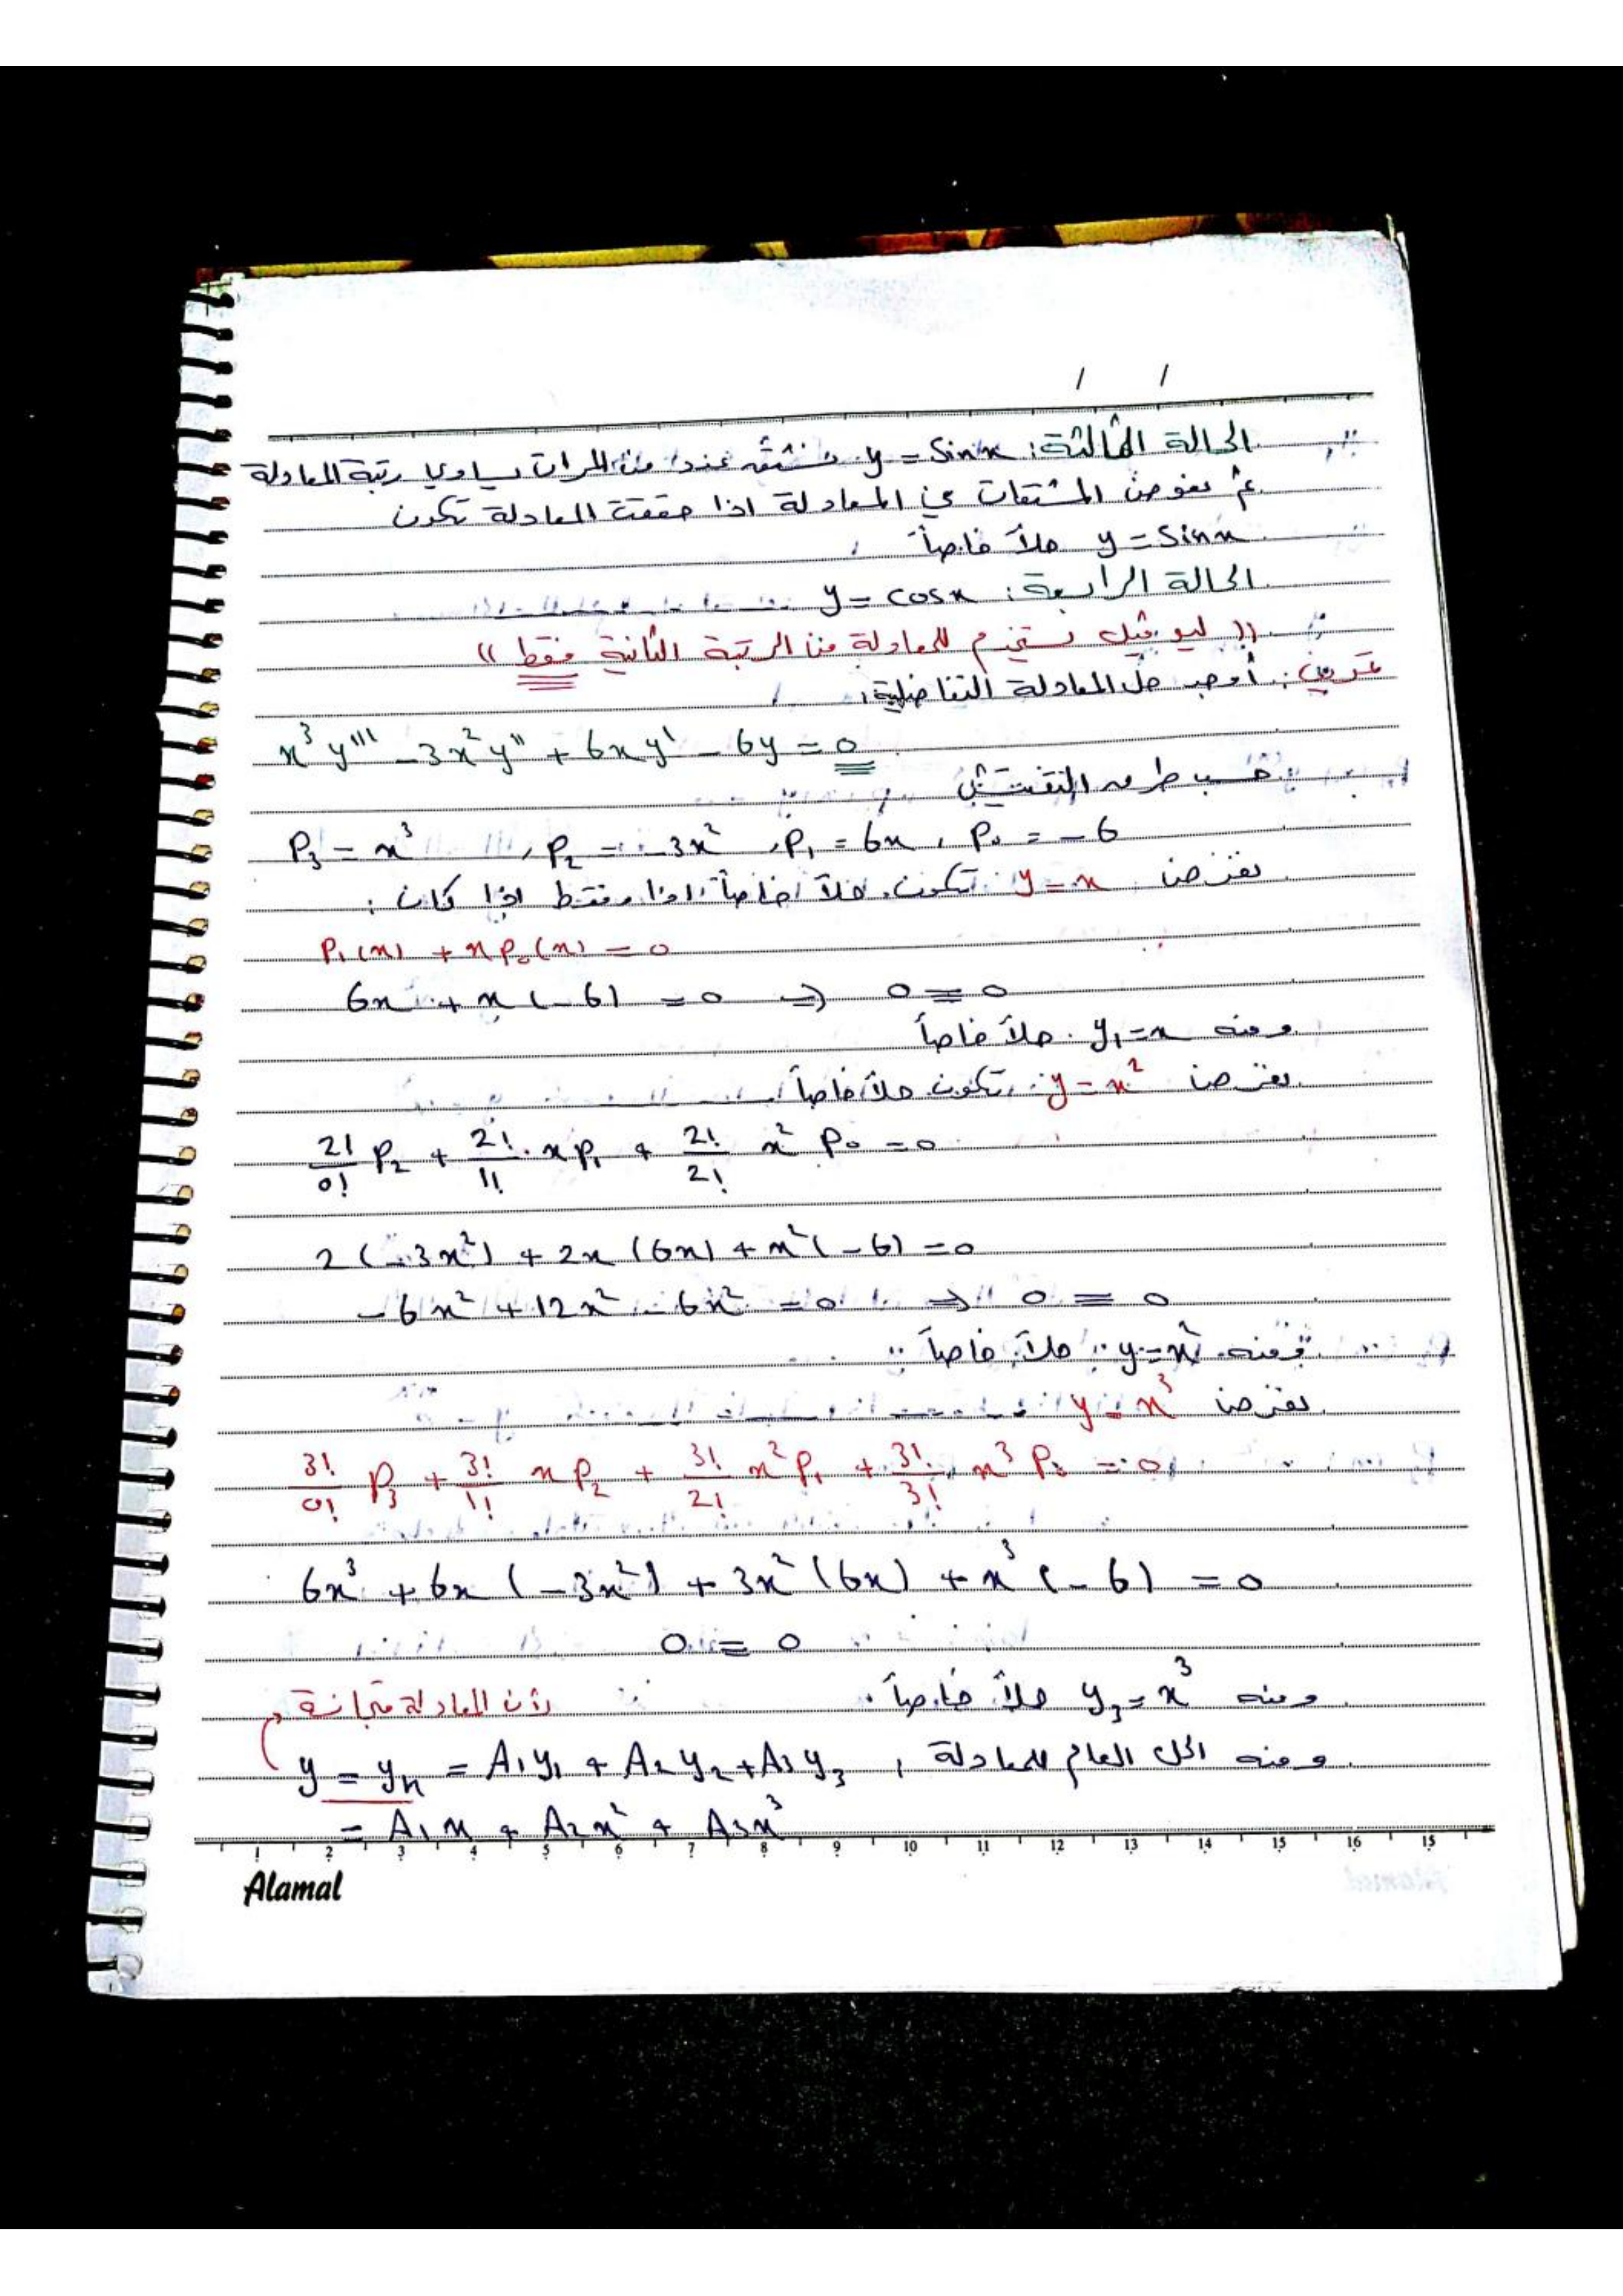 / /
الحالة الثالثة: y = Sinx نشتقه عدد من المرات يساوي رتبة المعادلة
ثم نعوض المشتقات في المعادلة اذا حققت المعادلة تكون
y = Sinx حلاً خاصاً
الحالة الرابعة: y = cosx
(( ليوفيل تستخدم للمعادلة من الرتبة الثانية فقط ))
تمرين: أوجد حل المعادلة التفاضلية:
x³y''' - 3x²y'' + 6xy' - 6y = 0
حسب طرق التفتيش
P₃ = x³ , P₂ = -3x² , P₁ = 6x , P₀ = -6
نفرض y = x تكون حلاً خاصاً اذا وفقط اذا كان :
P₁(x) + xP₀(x) = 0
6x + x(-6) = 0 ⇒ 0 = 0
ومنه y₁ = x حلاً خاصاً
نفرض y = x² تكون حلاً خاصاً
2!/0! P₂ + 2!/1! · xP₁ + 2!/2! x² P₀ = 0
2(-3x²) + 2x(6x) + x²(-6) = 0
-6x² + 12x² - 6x² = 0 ⇒ 0 = 0
ومنه y = x² حلاً خاصاً
نفرض y = x³
3!/0! P₃ + 3!/1! xP₂ + 3!/2! x²P₁ + 3!/3! x³P₀ = 0
6x³ + 6x(-3x²) + 3x²(6x) + x³(-6) = 0
0 = 0
ومنه y₃ = x³ حلاً خاصاً. لأن المعادلة متجانسة
ومنه الحل العام للمعادلة , y = yₕ = A₁y₁ + A₂y₂ + A₃y₃
= A₁x + A₂x² + A₃x³
1 2 3 4 5 6 7 8 9 10 11 12 13 14 15 16 15
Alamal